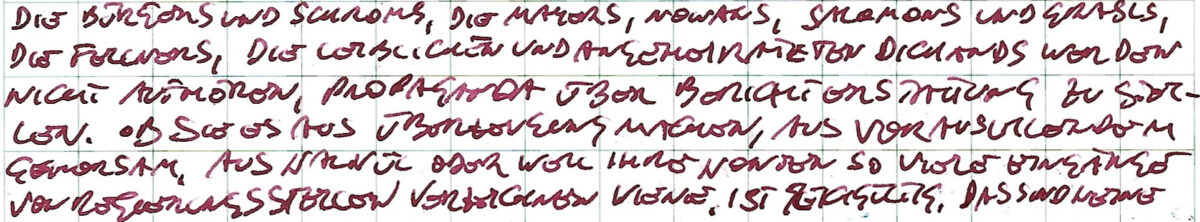 DIE BÜRGERS UND SCHROMS, DIE MAYERS, NOWAKS, SALOMONS UND GRASLS,
DIE FELLNERS, DIE LEIBLICHEN UND ANGEHEIRATETEN DICHANDS WERDEN
NICHT AUFHÖREN, PROPAGANDA ÜBER BERICHTERSTATTUNG ZU STÜL-
LEN. OB SIE ES AUS ÜBERZEUGUNG MACHEN, AUS VORAUSEILENDEM
GEHORSAM, AUS ODER WEIL IHRE KONTEN SO VIELE EINGÄNGE
VON REGIERUNGSSTELLEN VERZEICHNEN, IST, DAS SIND KEINE